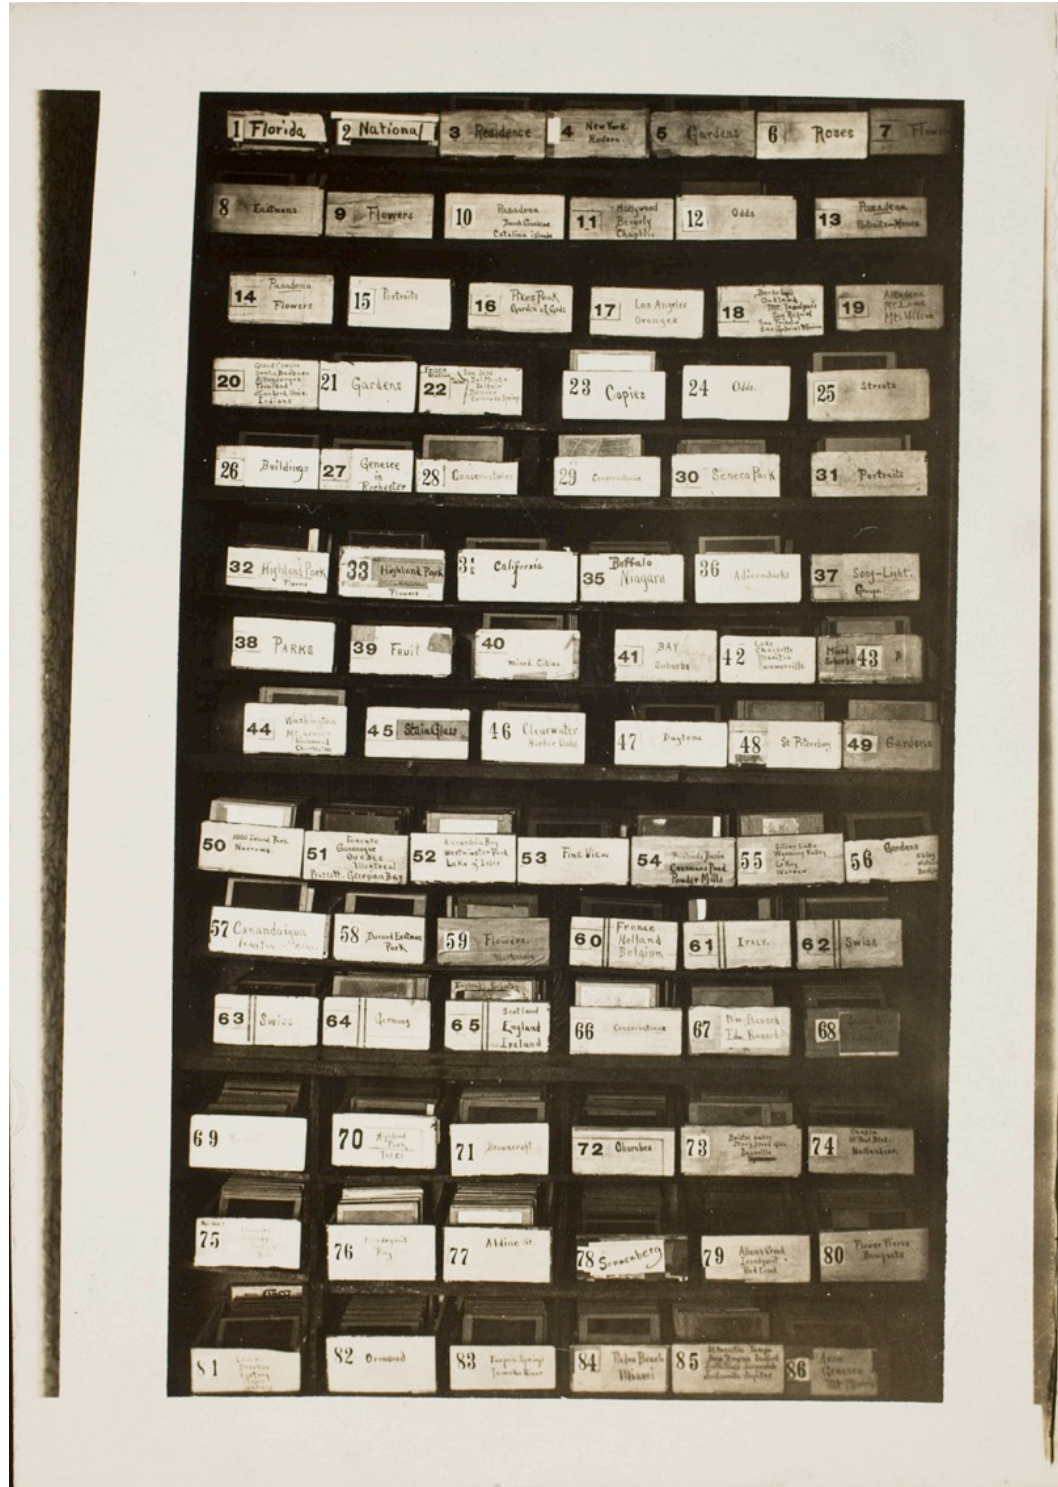 1 Florida
2 National
3 Residence
4 New York
Hudson
5 Gardens
6 Roses
7
8 Eastmans
9 Flowers
10 Pasadena
Busch Gardens
Catalina Islands
11 Hollywood
Beverly
Chaplin
12 Odds
13 Pasadena
14 Pasadena
Flowers
15 Portraits
16 Pikes Peak
Garden of Gods
17 Los Angeles
Oranges
18
Oakland
San Rafael
San Gabriel Mission
19 Altadena
Mt. Lowe
Mt. Wilson
20 Grand Canyon
Santa Barbara
Albuquerque
Trinidad
Stanford Univ.
Indians
21 Gardens
22
San Jose
Del Monte
Denver
Colorado Springs
23 Copies
24 Odds
25 Streets
26 Buildings
27 Genesee
in
Rochester
28 Conservatories
29 Conservatories
30 Seneca Park
31 Portraits
32 Highland Park
Flowers
33 Highland Park
Flowers
34 California
35 Buffalo
Niagara
36 Adirondacks
37 Song-Light-
Groups
38 PARKS
39 FRUIT
40
Mixed Cities
41 BAY
Suburbs
42 Lake
Charlotte
Summerville
43 Mixed
Suburbs
44 Washington
Mt. Vernon
Richmond
Charleston
45 Stain Glass
46 Clearwater
Harbor Oaks
47 Daytona
48 St Petersburg
49 Gardens
50 1000 Island Park
Narrows
51 Toronto
Gananoque
Quebec
Montreal
Prescott. Georgian Bay
52 Alexandria Bay
Westminster Park
Lake of Isles
53 Fine View
54
Powder Mills
55 Silver Lake
Wyoming Valley
LeRoy
Warsaw
56 Gardens
57 Canandaigua
58 Durand Eastman
Park
59 Flowers
60 France
Holland
Belgium
61 ITALY.
62 Swiss
63 Swiss
64 Germany
65 Scotland
England
Ireland
66 Conservatories
67 Wm. Bausch
Edw. Bausch
68
69
70 Highland
Park
Trees
71 Browncroft
72 Churches
73 Bristol Valley
Stony Brook Glen
Dansville
74
St Paul Blvd.
75
76 Irondequoit
Bay
77 Aldine St.
78 Sonnenberg
79 Allens Creek
Irondequoit
Red Creek
80 Flower Pieces
Bouquets
81
82 Ormond
83 Tarpon Springs
Tomoka River
84 Palm Beach
Miami
85
86 Avon
Geneseo
Mt Morris